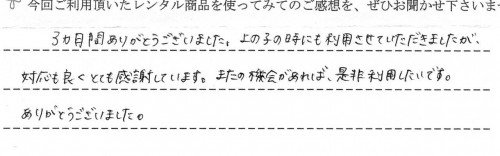 今回ご利用頂いたレンタル商品を使ってみてのご感想を、ぜひお聞かせ下さいま
3カ月間ありがとうございました。上の子の時にも利用させていただきましたが、
対応も良くとても感謝しています。またの機会があれば、是非利用したいです。
ありがとうございました。